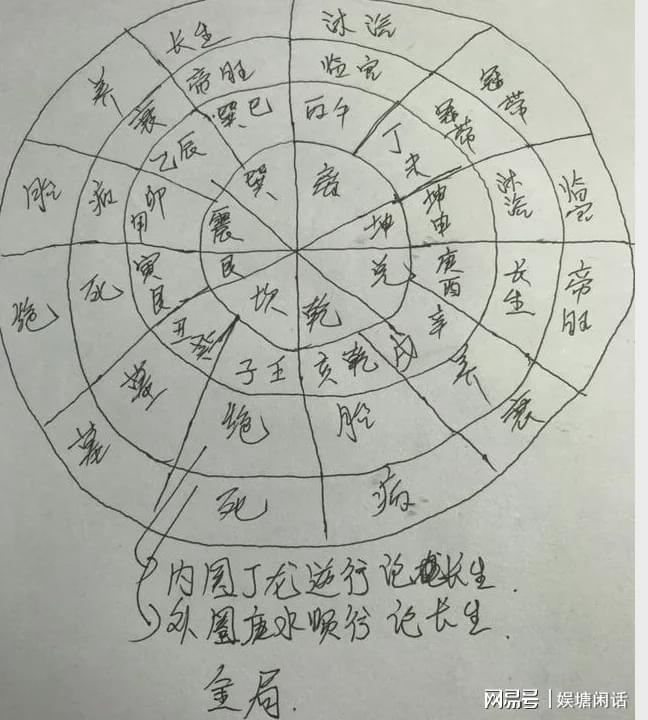 长生 沐浴
养 帝旺 临官 冠带
衰 巽巳 丙午 冠带
胎 病 乙辰 巽 离 丁未 沐浴 临官
甲卯 震 坤 坤申
绝 死 寅艮 艮 兑 庚酉 长生 帝旺
丑癸 坎 乾 辛
墓 子壬 亥乾 戌 养 衰
墓 绝 胎
死 病
内圈丁龙逆行论长生.
外圈庚水顺行论长生.
金局.
网易号 | 娱塘闲话